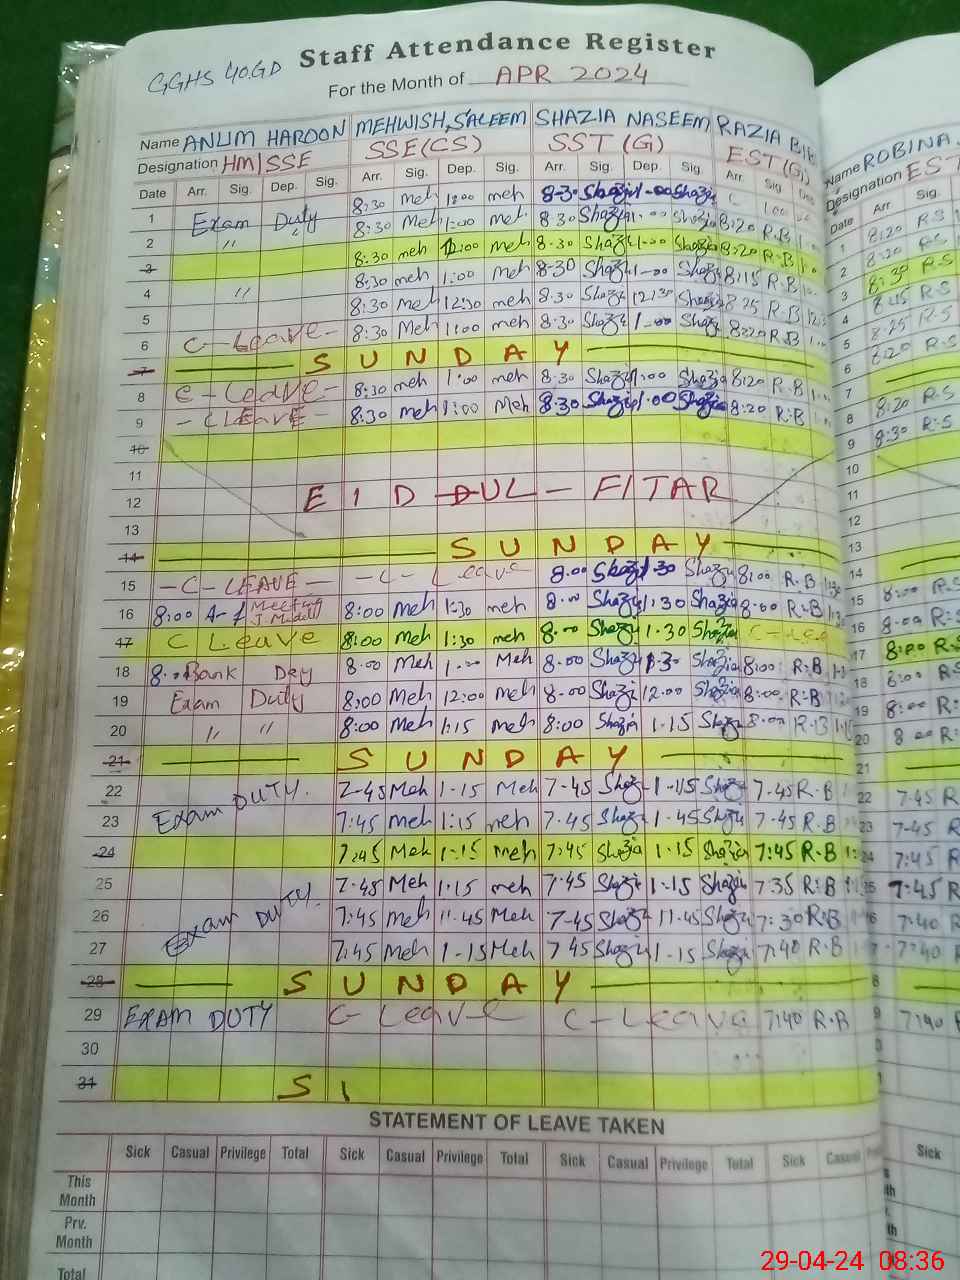 GGHS 40.GD Staff Attendance Register
For the Month of APR 2024
Name ANUM HAROON MEHWISH, SALEEM SHAZIA NASEEM RAZIA BIBI Name ROBINA
Designation HM/SSE SSE(CS) SST (G) EST(G) Designation EST
Date Arr. Sig. Dep. Sig. Arr. Sig. Dep. Sig. Arr. Sig. Dep. Sig. Arr. Sig. Date Arr Sig.
1 Exam Duty 8:30 meh 1:00 meh 8-30 Shazia 1-00 Shazia C Leave 1 8:20 R.S
2 " " 8:30 Meh 1:00 meh 8-30 Shazia 1-00 Shazia 8:20 R.B 2 8:20 R-S
3 8:30 meh 12:00 meh 8-30 Shazia 1-00 Shazia 8:20 R-B 3 8:30 R-S
4 " 8:30 meh 1:00 Meh 8-30 Shazia 1-00 Shazia 8:15 R.B 4 8:15 R-S
5 8:30 Meh 12:30 meh 8-30 Shazia 12:30 Shazia 8:25 R-B 5 8:25 R-S
6 C-Leave- 8:30 Meh 1:00 meh 8-30 Shazia 1-00 Shazia 8:20 R.B 6 8:20 R-S
7 S U N D A Y 7
8 C-Leave- 8:30 meh 1:00 meh 8-30 Shazia 1:00 Shazia 8:20 R-B 8 8:20 R-S
9 -C LEAVE 8:30 Meh 1:00 Meh 8-30 Shazia 1.00 Shazia 8:20 R-B 9 8:30 R-S
10 10
11 11
12 E I D DUL - FITAR 12
13 13
14 S U N D A Y 14
15 -C-LEAVE- -C-Leave 8.00 Shazia 1.30 Shazia 8:00 R.B 15 8:00 R-S
16 8:00 Meeting 8:00 Meh 1:30 meh 8.00 Shazia 1:30 Shazia 8:00 R.B 16 8:00 R-S
17 C Leave 8:00 Meh 1:30 meh 8.00 Shazia 1.30 Shazia C-Leave 17 8:00 R-S
18 8:00 Bank Dey 8:00 Meh 1:00 Meh 8.00 Shazia 1.30 Shazia 8:00 R-B 18 8:00 RS
19 Exam Duty 8:00 Meh 12:00 meh 8-00 Shazia 12.00 Shazia 8:00 R-B 19 8:00 R-
20 " " 8:00 Meh 1:15 meh 8:00 Shazia 1.15 Shazia 8:00 R-B 20 8:00 R-
21 S U N D A Y 21
22 Exam DUTY. 7-45 Meh 1-15 Meh 7-45 Shazia 1-15 Shazia 7-45 R-B 22 7-45 R
23 7:45 meh 1:15 meh 7-45 Shazia 1-45 Shazia 7-45 R.B 23 7-45 R
24 7:45 Meh 1:15 meh 7:45 Shazia 1.15 Shazia 7:45 R-B 24 7:45 R
25 7-45 Meh 1.15 meh 7-45 Shazia 1-15 Shazia 7:35 R:B 25 7:45 R
26 Exam DUTY. 7:45 meh 11.45 Meh 7-45 Shazia 11.45 Shazia 7:30 R-B 7:40 R
27 7:45 Meh 1-15 Meh 7 45 Shazia 1-15 Shazia 7:40 R-B 7:40 R
28 S U N D A Y
29 EXAM DUTY C-Leave C-Leave 7:40 R.B 7:40 R
30
31 S
STATEMENT OF LEAVE TAKEN
Sick Casual Privilege Total Sick Casual Privilege Total Sick Casual Privilege Total Sick Casual Sick
This Month
Prv. Month
Total
29-04-24 08:36